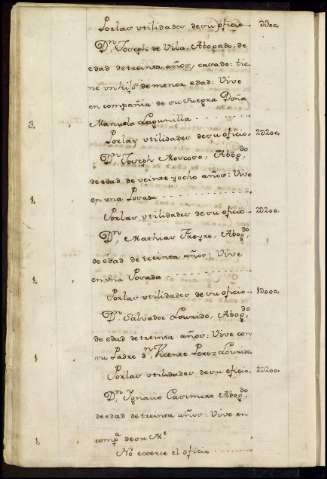 Por las utilidades de su oficio
Dn. Joseph de Vila, Abogado, de
edad de treinta años, casado: tie
ne un hijo de menor edad: Vive
en compañia de su suegra Doña
3. Manuela
Por las utilidades de su oficio.. 2200.
Dn. Joseph Moscoso, Abogdo
de edad de veinte y ocho años: Vive
1. en una Posada
Por las utilidades de su oficio..
Dn. Mathias Freyre, Abogdo
de edad de treinta años: Vive
1. en una Posada
Por las utilidades de su oficio..
Dn. Salvador Lourido, Abogdo,
de edad de treinta años: Vive con
1. su Padre dn. Vicente Perez Lourido
Por las utilidades de su oficio. 2200.
Dn. Ignacio Abogdo
de edad de treinta años: Vive en
1. compa. de su Me
No exerce el oficio